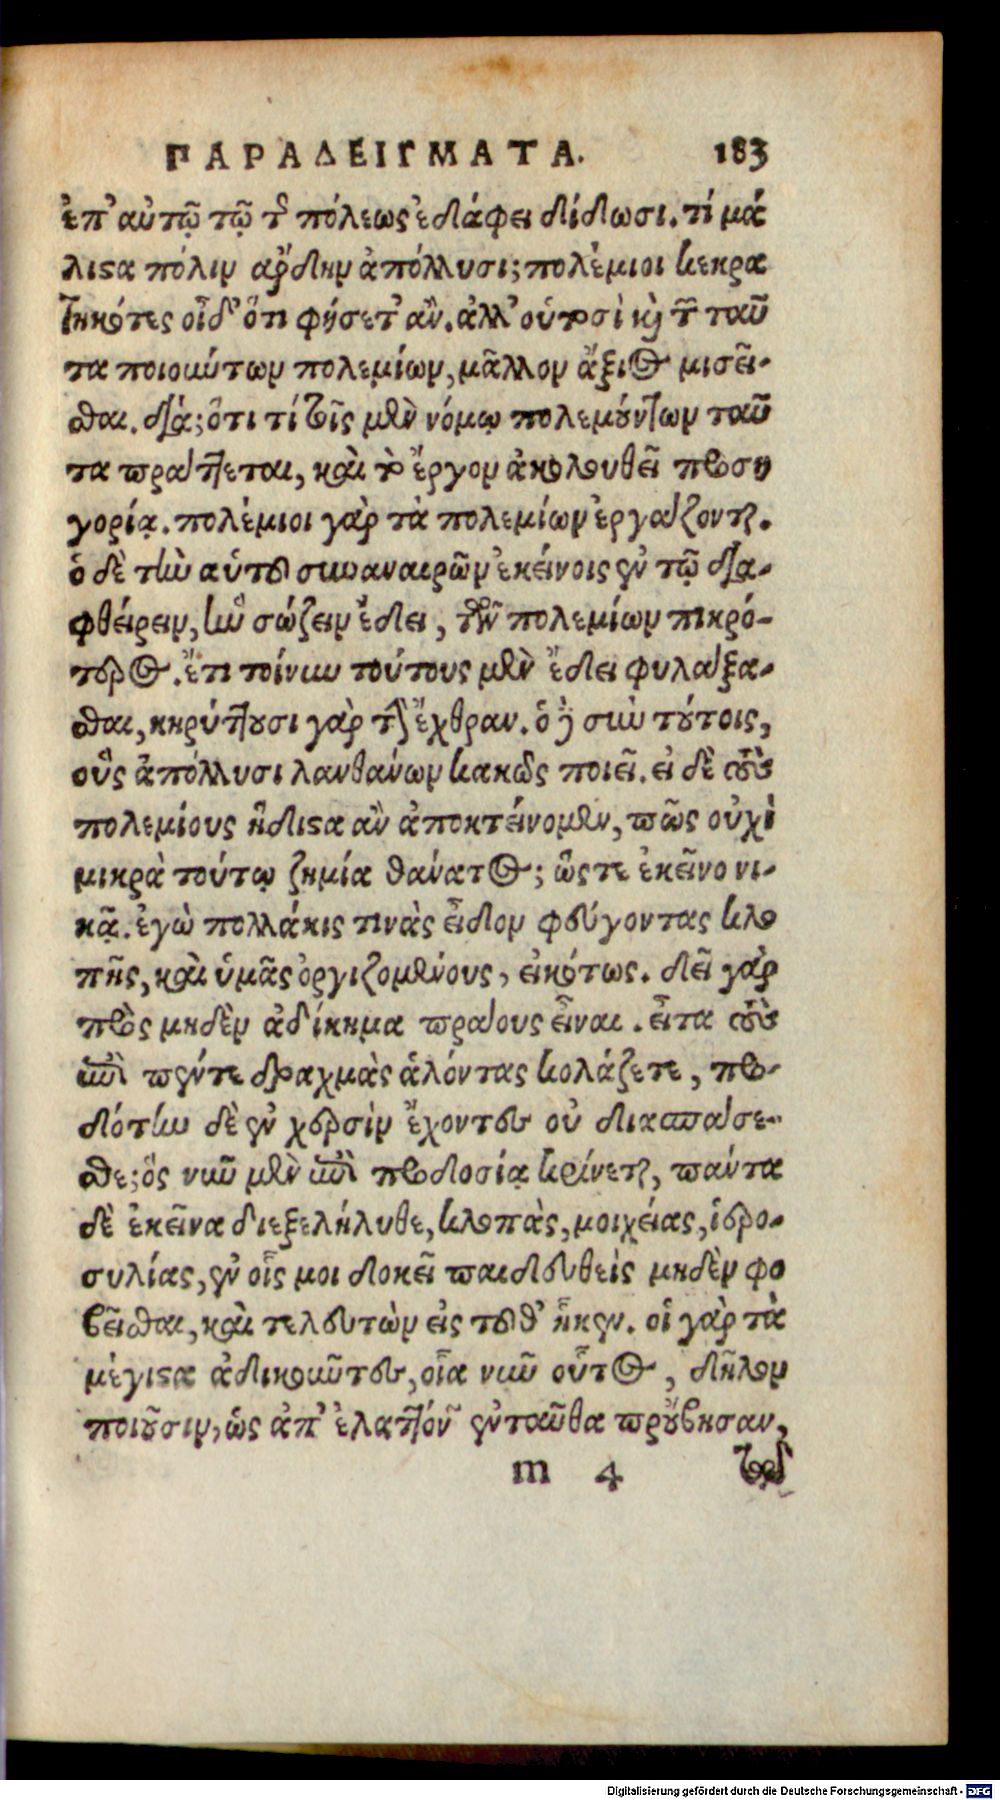 ΠΑΡΑΔΕΙΓΜΑΤΑ. 183
ἐπ' αὐτῷ τῷ τῆς πόλεως ἐδάφει δίδωσι. τί μά
λιστα πόλιν ἄρδην ἀπόλλυσι; πολέμιοι κεκρα
τηκότες οἶδ' ὅτι φήσετ' ἄν. ἀλλ' οὑτοσὶ καὶ τῶν ταῦ
τα ποιούντων πολεμίων, μᾶλλον ἄξιος μισεῖ-
σθαι. διὰ; ὅτι τί τοῖς μὲν νόμῳ πολεμούντων ταῦ
τα πράττεται, καὶ τὸ ἔργον ἀκολουθεῖ προση
γορίᾳ. πολέμιοι γὰρ τὰ πολεμίων ἐργάζονται.
ὁ δὲ τὴν αὑτοῦ συναναιρῶν ἐκείνοις ἐν τῷ δια-
φθείρειν, ἣν σώζειν ἔδει, τῶν πολεμίων πικρό-
τερος. ἔτι τοίνυν τούτους μὲν ἔδει φυλάξα-
σθαι, κηρύττουσι γὰρ τὴν ἔχθραν. ὁ δὲ σὺν τούτοις,
οὓς ἀπόλλυσι λανθάνων κακῶς ποιεῖ. εἰ δὲ τοὺς
πολεμίους ἥδιστα ἂν ἀποκτείνομεν, πῶς οὐχὶ
μικρὰ τούτῳ ζημία θάνατος; ὥστε ἐκεῖνο νι-
κᾷ. ἐγὼ πολλάκις τινὰς εἶδον φεύγοντας κλο
πῆς, καὶ ὑμᾶς ὀργιζομένους, εἰκότως. δεῖ γὰρ
πρὸς μηδὲν ἀδίκημα πράους εἶναι. εἶτα τοὺς
ἐπὶ πέντε δραχμὰς ἁλόντας κολάζετε, προ-
δότην δὲ ἐν χερσὶν ἔχοντες οὐ διασπάσε-
σθε; ὃς νῦν μὲν ἐπὶ προδοσίᾳ κρίνεται, πάντα
δὲ ἐκεῖνα διεξελήλυθε, κλοπὰς, μοιχείας, ἱερο-
συλίας, ἐν οἷς μοι δοκεῖ παιδευθεὶς μηδὲν φο
βεῖσθαι, καὶ τελευτῶν εἰς τοῦθ' ἥκειν. οἱ γὰρ τὰ
μέγιστα ἀδικοῦντες, οἷα νῦν οὗτος, δῆλον
ποιοῦσιν, ὡς ἀπ' ἐλαττόνων ἐνταῦθα προὔβησαν,
m 4